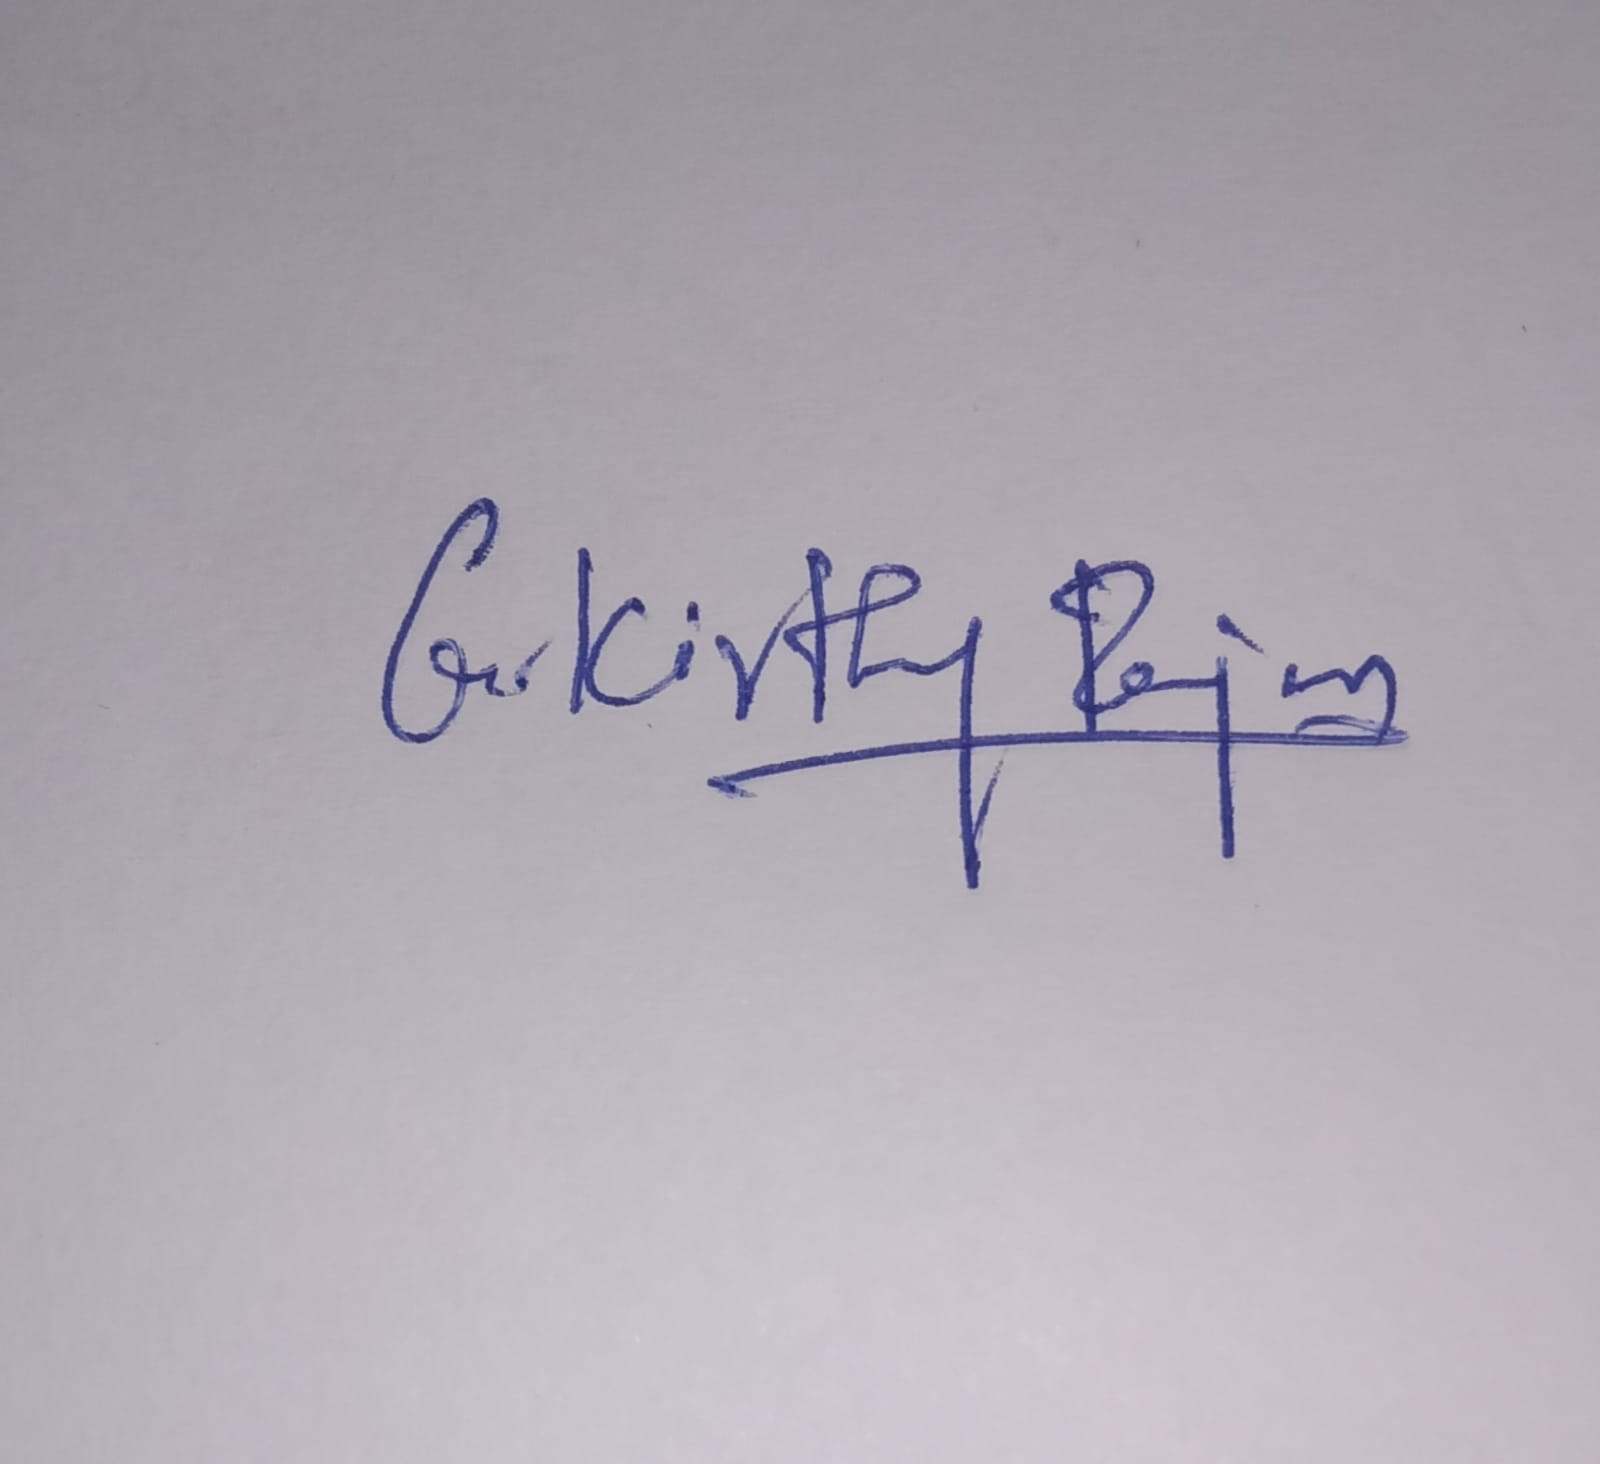 G. Kirthy Rajan